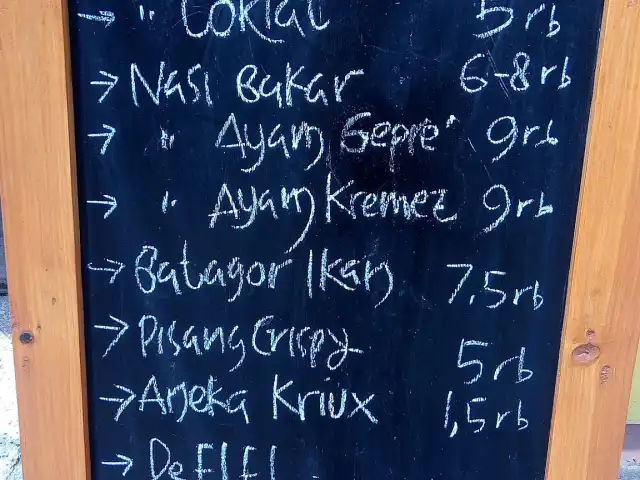 → " Coklat 5 rb
→ Nasi Bakar 6-8 rb
→ " Ayam Gepre' 9 rb
→ " Ayam Kremez 9 rb
→ Batagor Ikan 7,5 rb
→ Pisang Crispy 5 rb
→ Aneka Kriux 1,5 rb
→